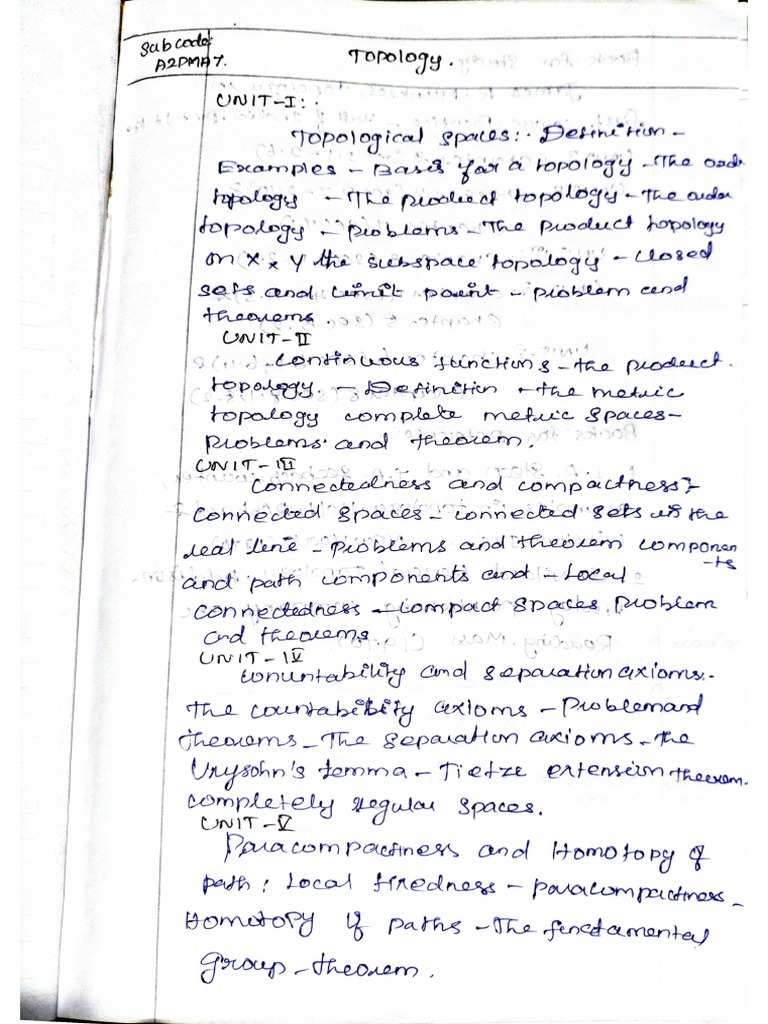 Sub code:
A2PMA7.
Topology.
UNIT-I:.
Topological spaces:. Definition -
Examples - Basis for a topology - The order
topology - The product topology - The order
topology - problems - The product topology
on X x Y the subspace topology - closed
sets and limit point - problem and
theorems
UNIT-II
Continuous functions - the product
topology. - Definition - the metric
topology complete metric spaces -
problems. and theorem.
UNIT-III
Connectedness and compactness:-
Connected spaces - connected sets in the
real line - problems and theorem componen
-ts
and path components and - Local
connectedness - compact spaces problem
and theorems.
UNIT-IV
Conuntability and separation axioms.-
The countability axioms - Problem and
theorems - The separation axioms - the
Urysohn's lemma - Tietze extension theorem.
completely regular spaces.
UNIT-V
Paracompactness and Homotopy of
path: Local finedness - paracompactness -
Homotopy of paths - The fundamental
group - theorem.